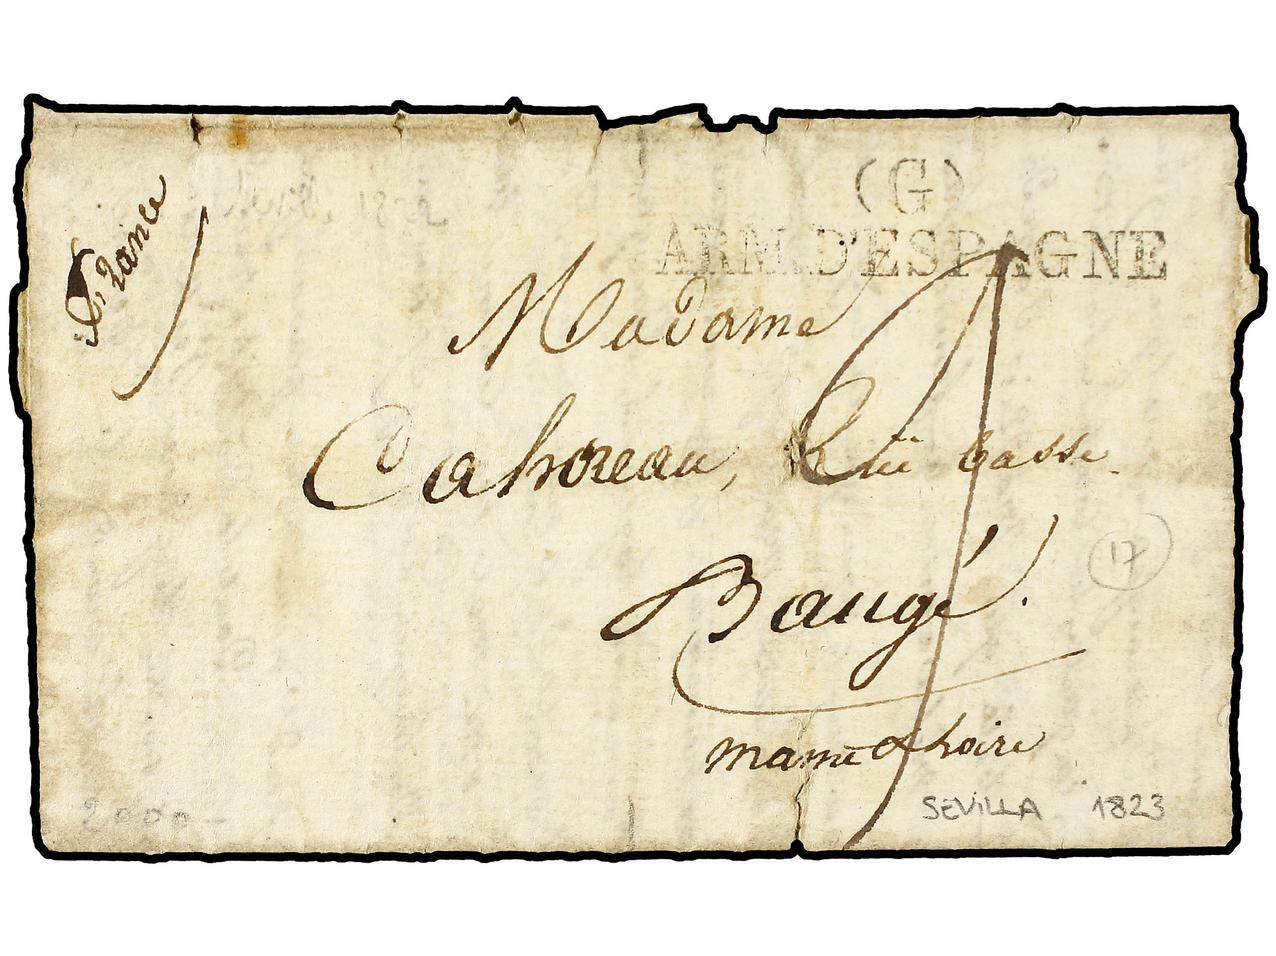 France
(G)
ARM. D'ESPAGNE
Madame
Cahoreau, Rüe basse
Baugé.
maine & Loire
17
2000 -
SEVILLA 1823